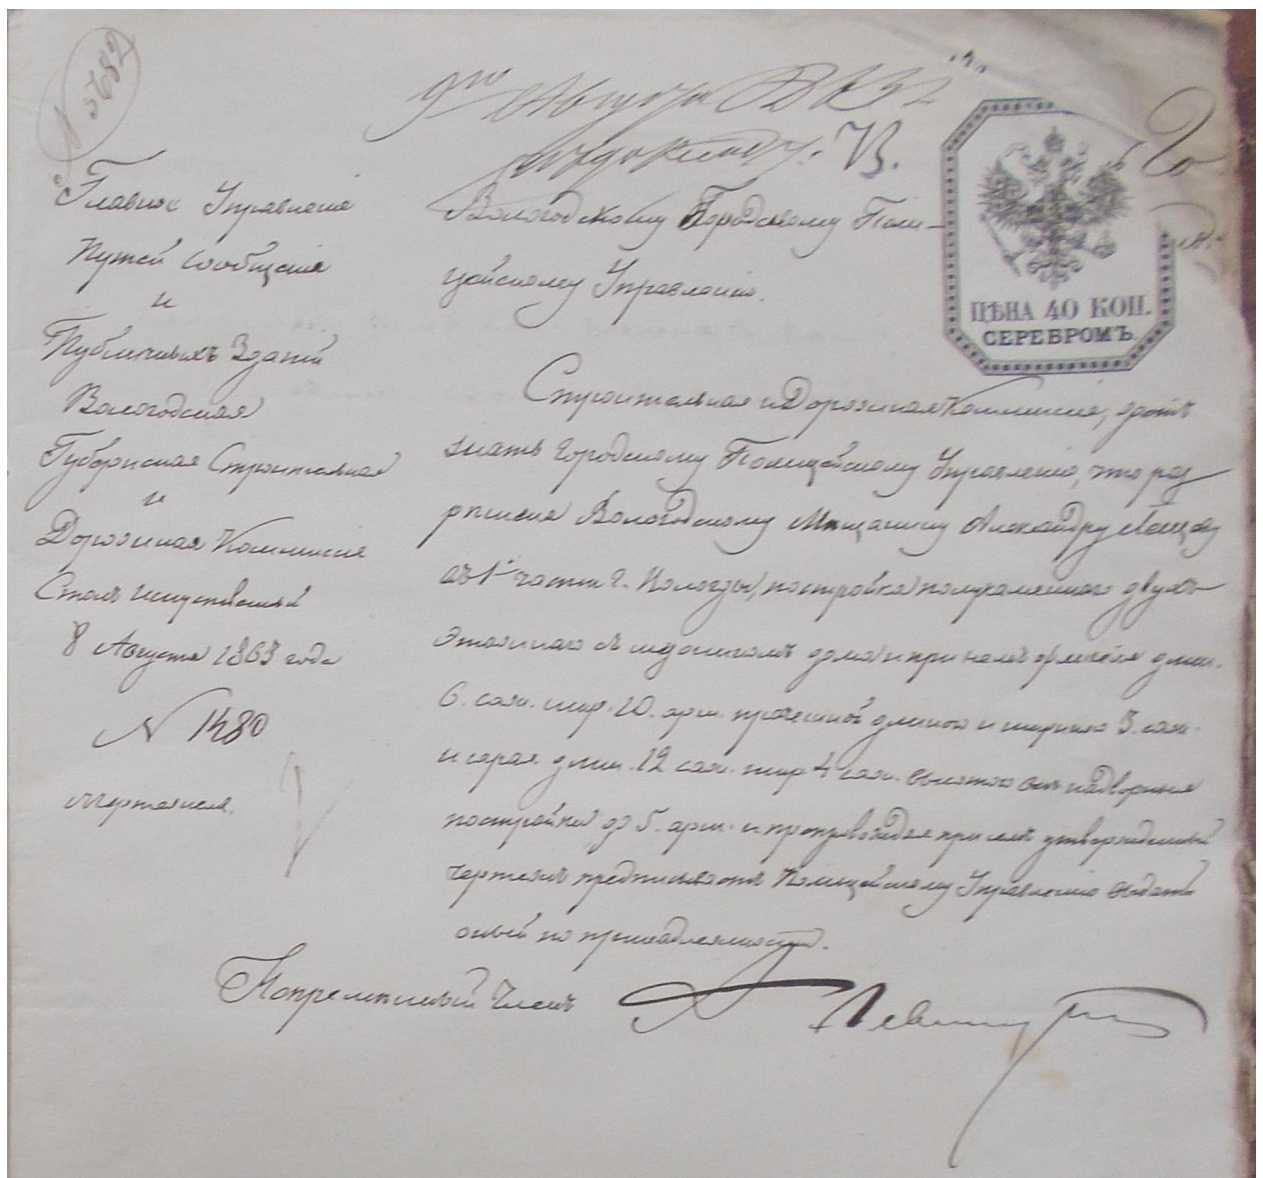 N 5682
9го Августа
Главное Управленіе
Путей Сообщенія
и
Публичныхъ Зданій
Вологодская
Губернская Строительная
и
Дорожная Коммисія
Столъ искуственный
8 Августа 1863 года
N 1480
Чертежная.
Вологодскому Городскому Поли-
цейскому Управленію.
ЦѢНА 40 КОП.
СЕРЕБРОМЪ.
Строительная и Дорожная Коммисія, даетъ
знать Городскому Полицейскому Управленію, что раз
рѣшена Вологодскому Мѣщанину Александру
въ 1й части г. Вологды, постройка полукаменнаго двухъ
этажнаго съ мезониномъ дома и при немъ флигеля длин.
6. саж. шир. 10. арш. длиною и шириною 3. саж.
и сарая длин. 12 саж. шир 4 саж. высотою надворныя
постройки до 5. арш. и препровождая при семъ утвержденный
чертежъ предписываетъ Полицейскому Управленію выдать
оный по принадлежности.
Непремѣнный Членъ